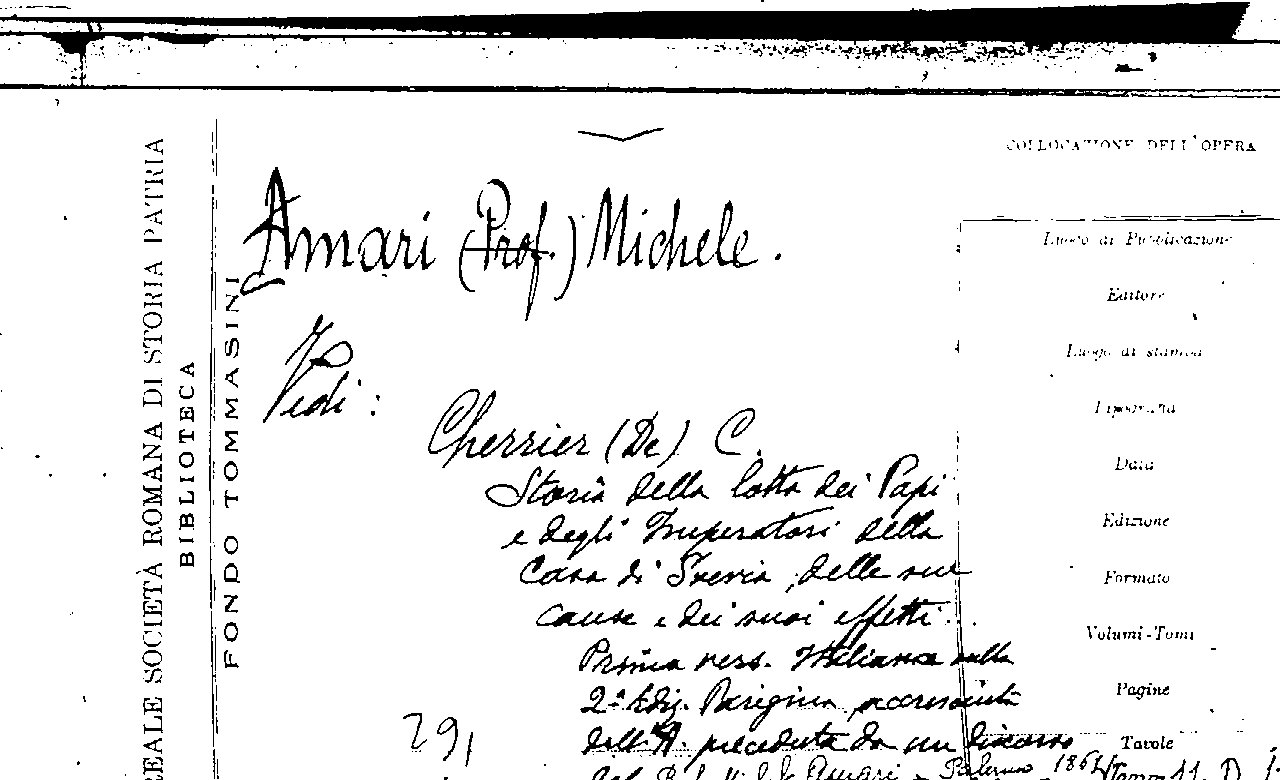 COLLOCAZIONE DELL'OPERA
REALE SOCIETÀ ROMANA DI STORIA PATRIA
BIBLIOTECA
FONDO TOMMASINI
Amari (Prof.) Michele.
Vedi:
Cherrier (De) C.
Storia della lotta dei Papi
e degli Imperatori della
Casa di Svevia, delle sue
cause e dei suoi effetti...
Prima vers. Italiana sulla
2ª Ediz. Parigina, accresciuta
dall'A. preceduta da un discorso
Amari - Palermo 1862
291
Luogo di Pubblicazione
Editore
Luogo di stampa
Tipografia
Data
Edizione
Formato
Volumi-Tomi
Pagine
Tavole